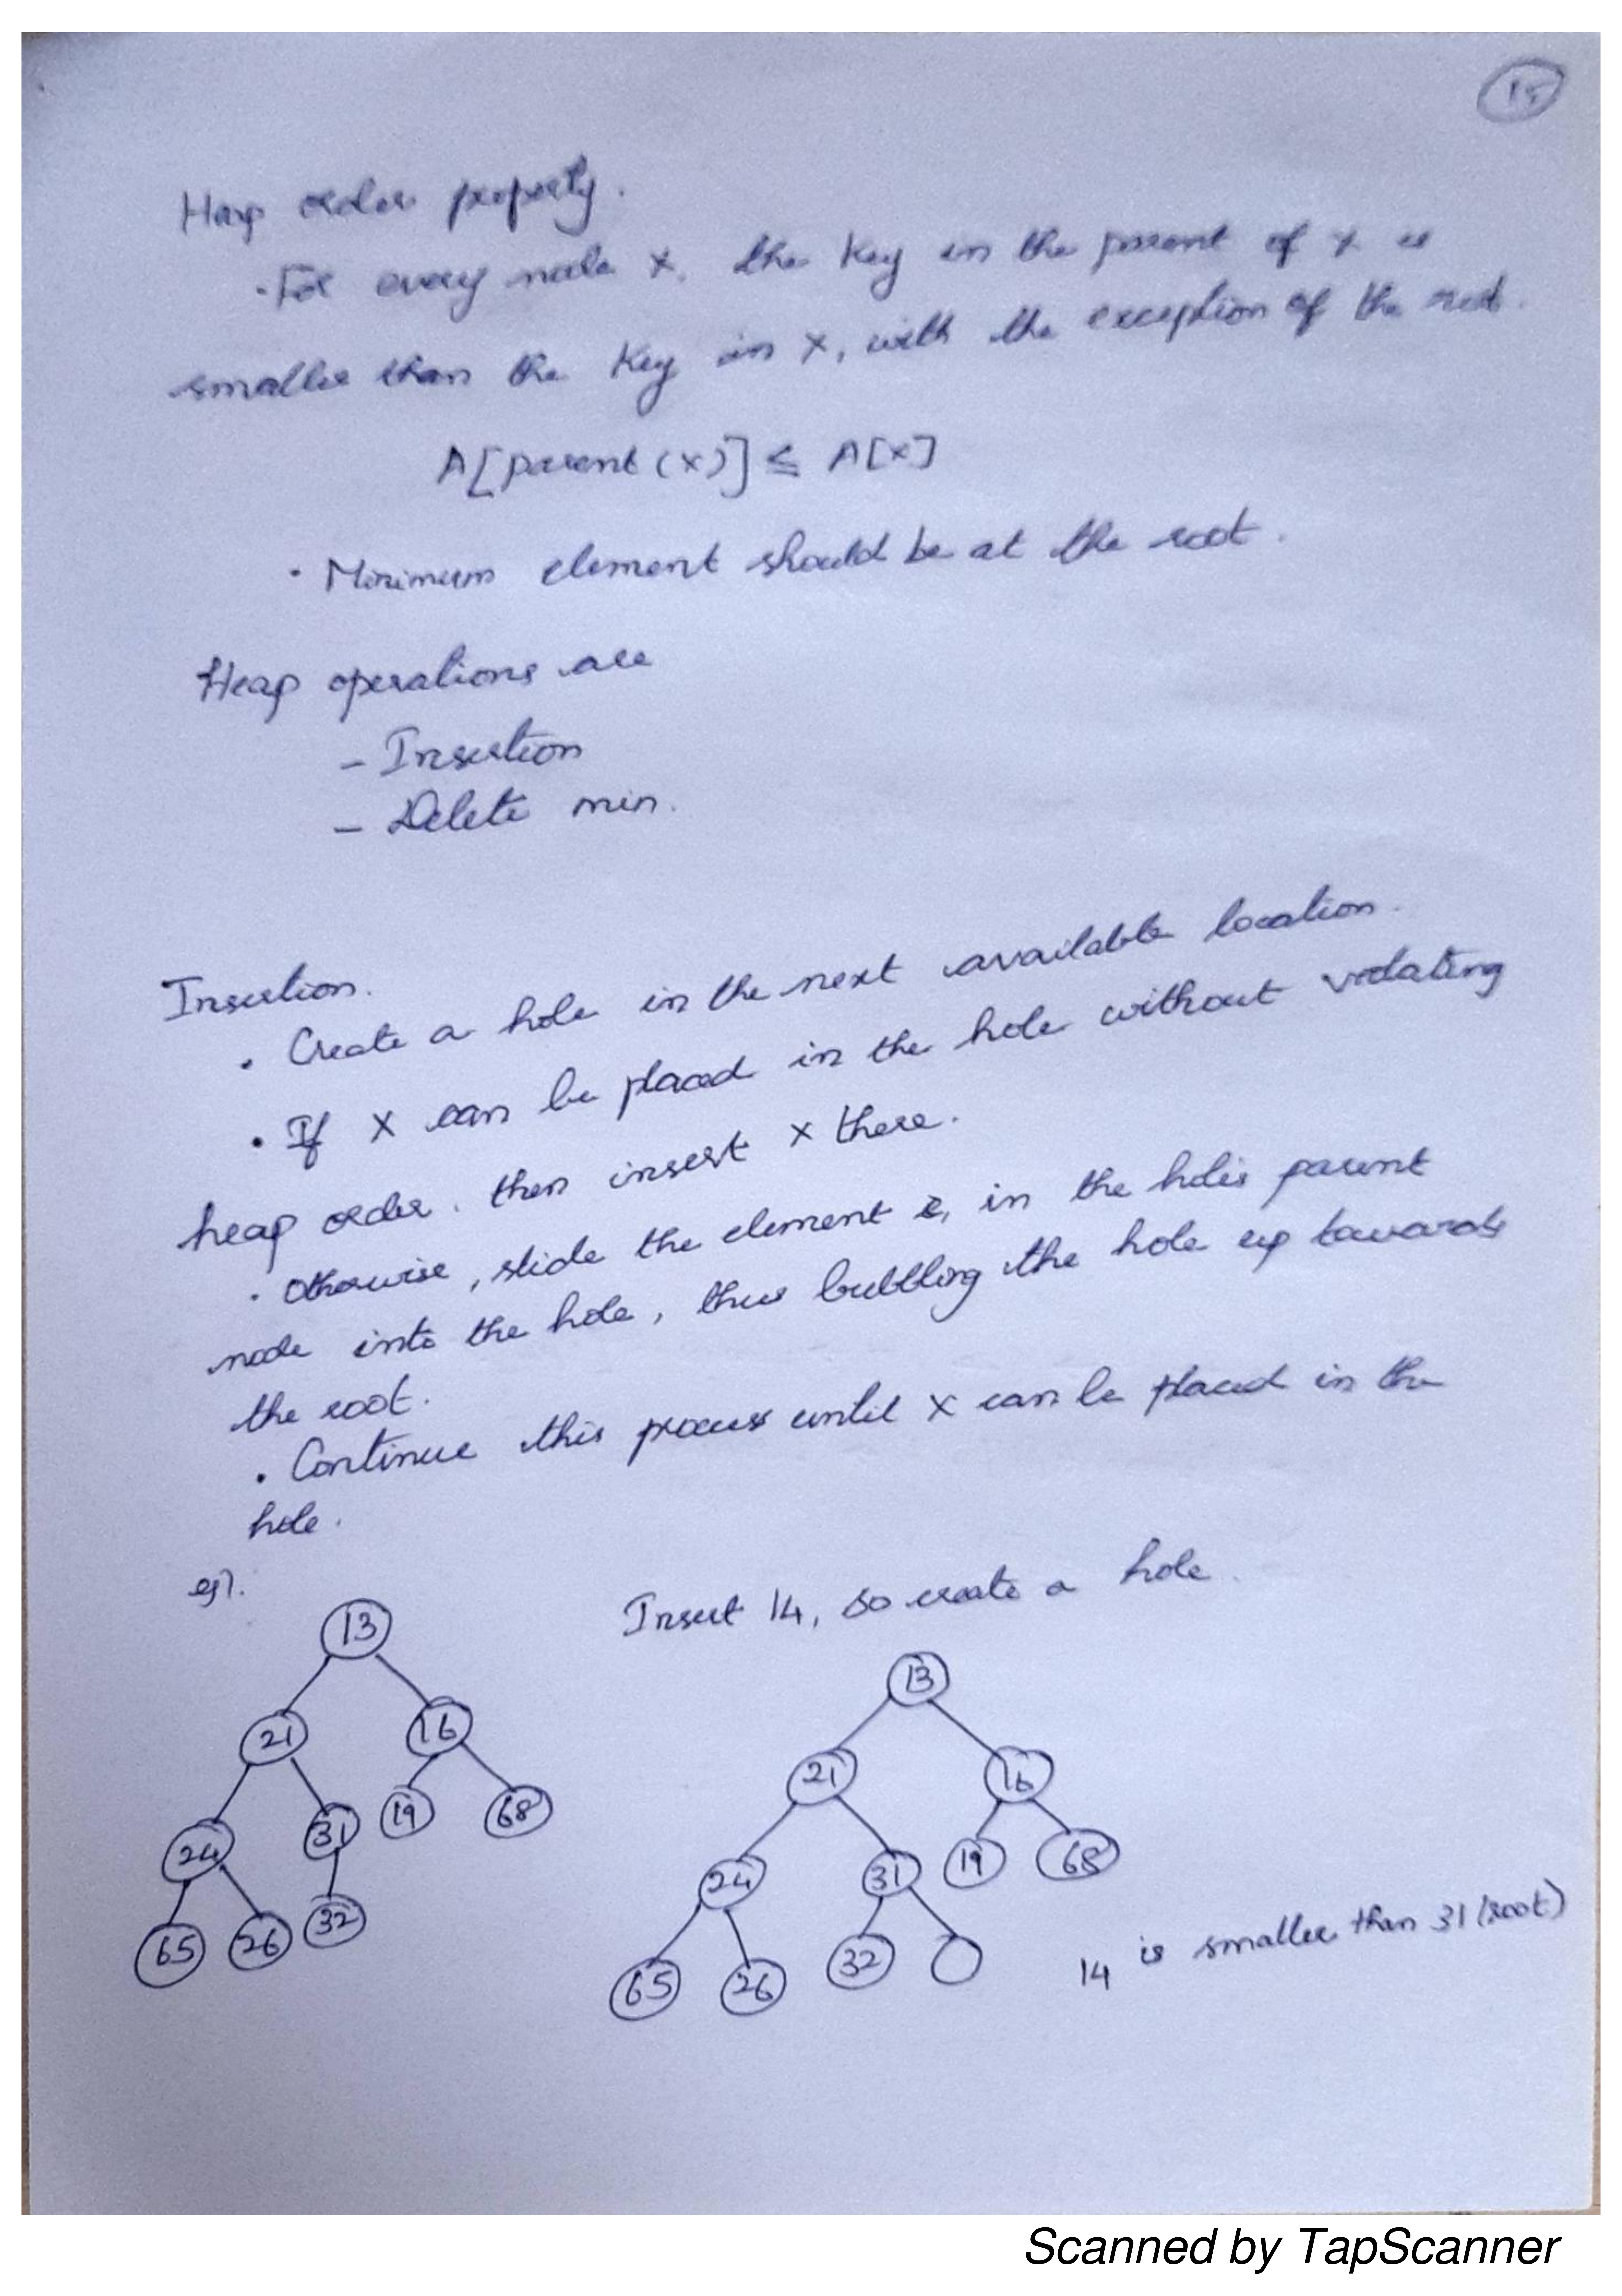 15
Heap order property.
· For every node X, the key in the parent of X is
smaller than the key in X, with the exception of the root.
A[parent(x)] ≤ A[x]
· Minimum element should be at the root.
Heap operations are
- Insertion
- Delete min.
Insertion.
· Create a hole in the next available location.
· If X can be placed in the hole without violating
heap order. then insert X there.
· Otherwise, slide the element in the hole's parent
node into the hole, thus bubbling the hole up towards
the root.
· Continue this process until X can be placed in the
hole.
eg).
Insert 14, so create a hole.
13
21 16
24 31 19 68
65 26 32
13
21 16
24 31 19 68
65 26 32
14 is smaller than 31 (root)
Scanned by TapScanner